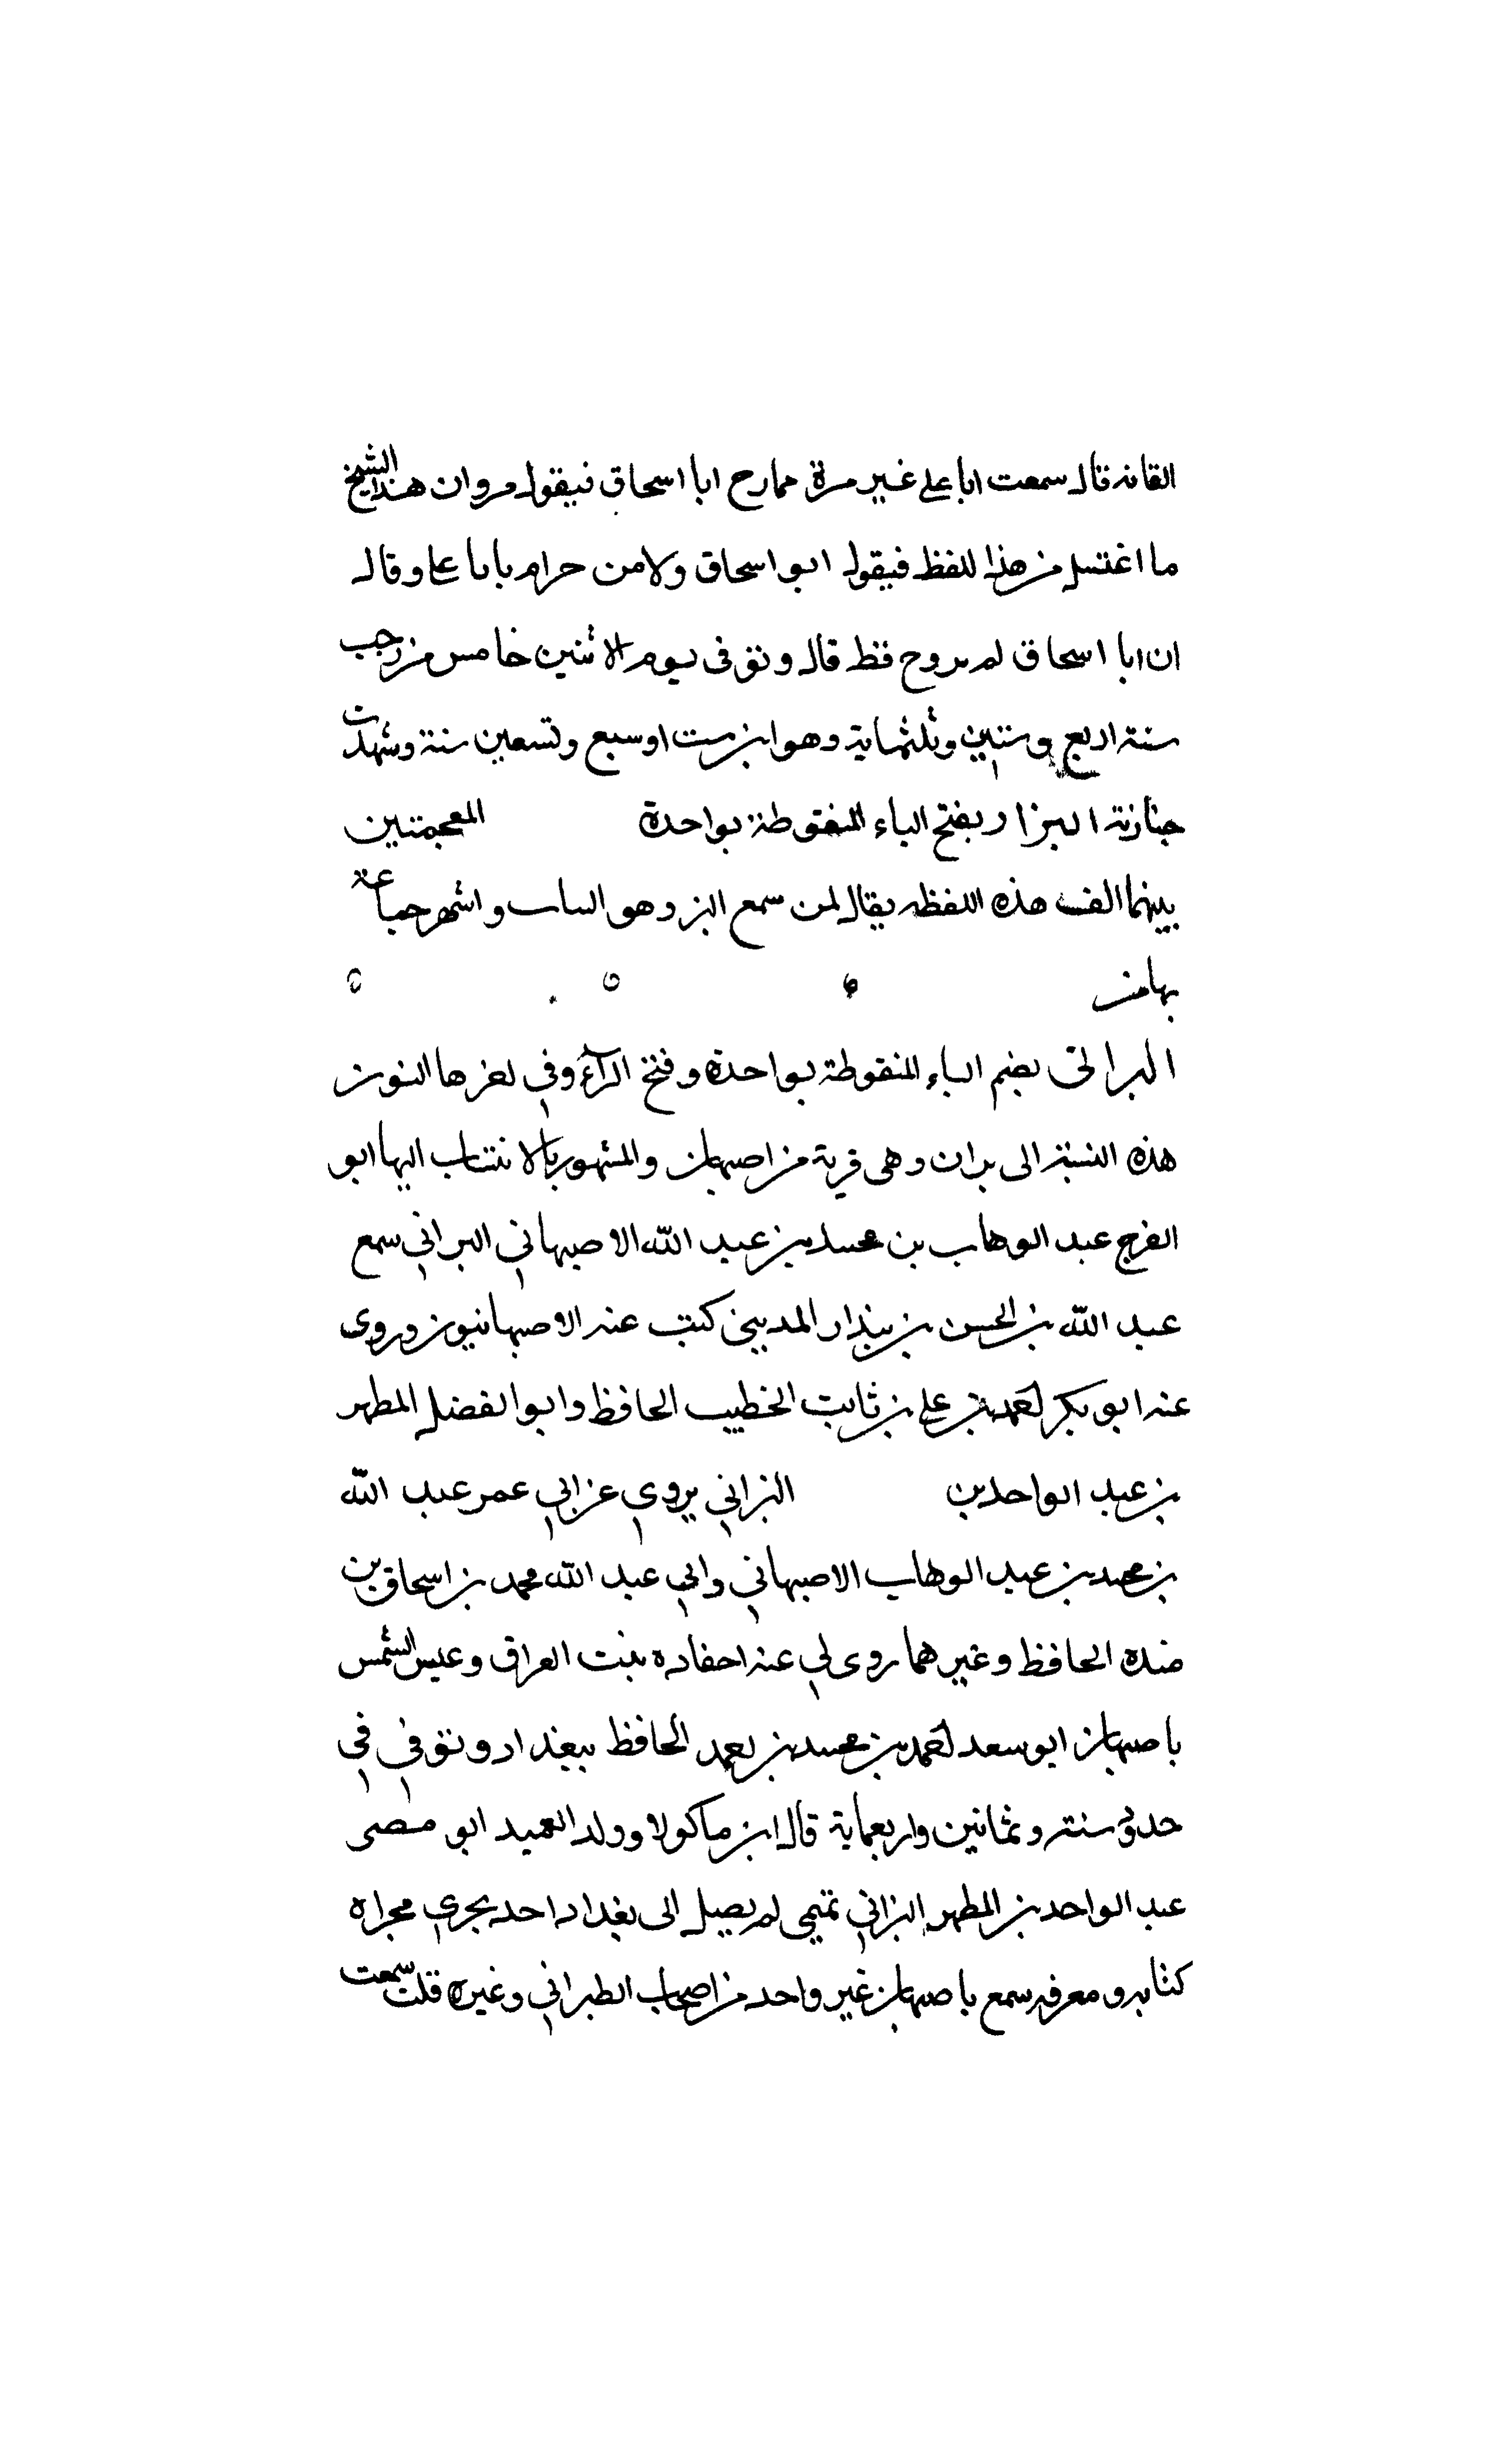 القانه قال سمعت ابا علي غير مرة ممارح ابا اسحاق فيقول مروان هذا الشيخ
ما اغتسل من هذا للفظ فيقول ابو اسحاق ولا من حرام يابا علي وقال
ان ابا اسحاق لم يروح قط قال وتوفى يوم الاثنين خامس من رجب
سنة اربع وستين وثلثماية وهو ابن ست او سبع وتسعين سنة وشهدت
جنازته البزار بفتح الباء المنقوطة بواحدة المعجمتين
بينهما الف هذه اللفظه يقال لمن سمع البز وهو الساب واشهر جماعة
بها من
البراني بضم الباء المنقوطة بواحدة وفتح الرآء وفي اخرها النون
هذه النسبة الى بران وهى قرية من اصبهان والمشهور بالانتساب اليها ابو
الفرج عبد الوهاب بن محمد بن عبد الله الاصبهاني البراني سمع
عبد الله بن الحسن بن بندار المديني كتب عنه الاصبهانيون وروى
عنه ابو بكر احمد بن علي بن ثابت الخطيب الحافظ وابو الفضل المطهر
بن عبد الواحد بن البزاني يروي عن ابي عمر عبد الله
بن محمد بن عبد الوهاب الاصبهاني وابي عبد الله محمد بن اسحاق بن
منده الحافظ وغيرهما روى لي عنه احفاده بنت العراق وعين الشمس
باصبهان ابو سعد احمد بن محمد بن احمد الحافظ ببغداد وتوفي في
حدود سنة وثمانين واربعماية قال ابن ماكولا وولد العميد ابو مضى
عبد الواحد بن المطهر البزاني تميمي لم يصل الى بغداد احد يجري مجراه
كتابه ومعرفه سمع باصبهان غير واحد من اصحاب الطبراني وغيره قلت سمعت